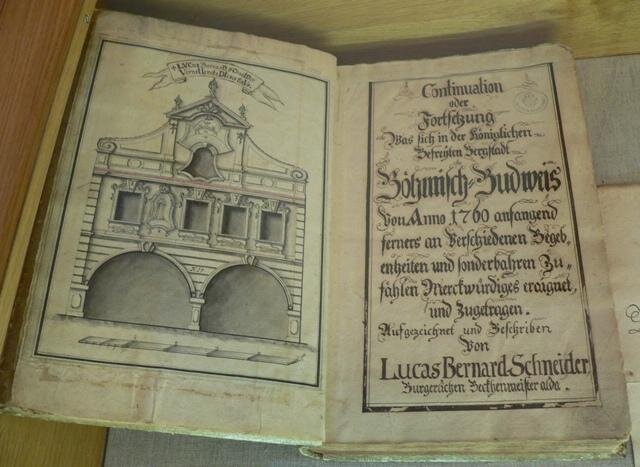 Lucas
N 17
Continuation
oder
Fortsetzung
Was sich in der Königlichen
Befreyten Bergstadt
Böhmisch-Budwäs
Von Anno 1760 anfangend
ferners an Verschiedenen Begeb„
enheiten und sonderbahren Zu„
fählen Merckwürdiges eraignet,
und Zugetragen.
Aufgezeichnet und Beschriben
Von
Lucas Bernard Schneider,
Burgerlichen Beckhenmeister alda.